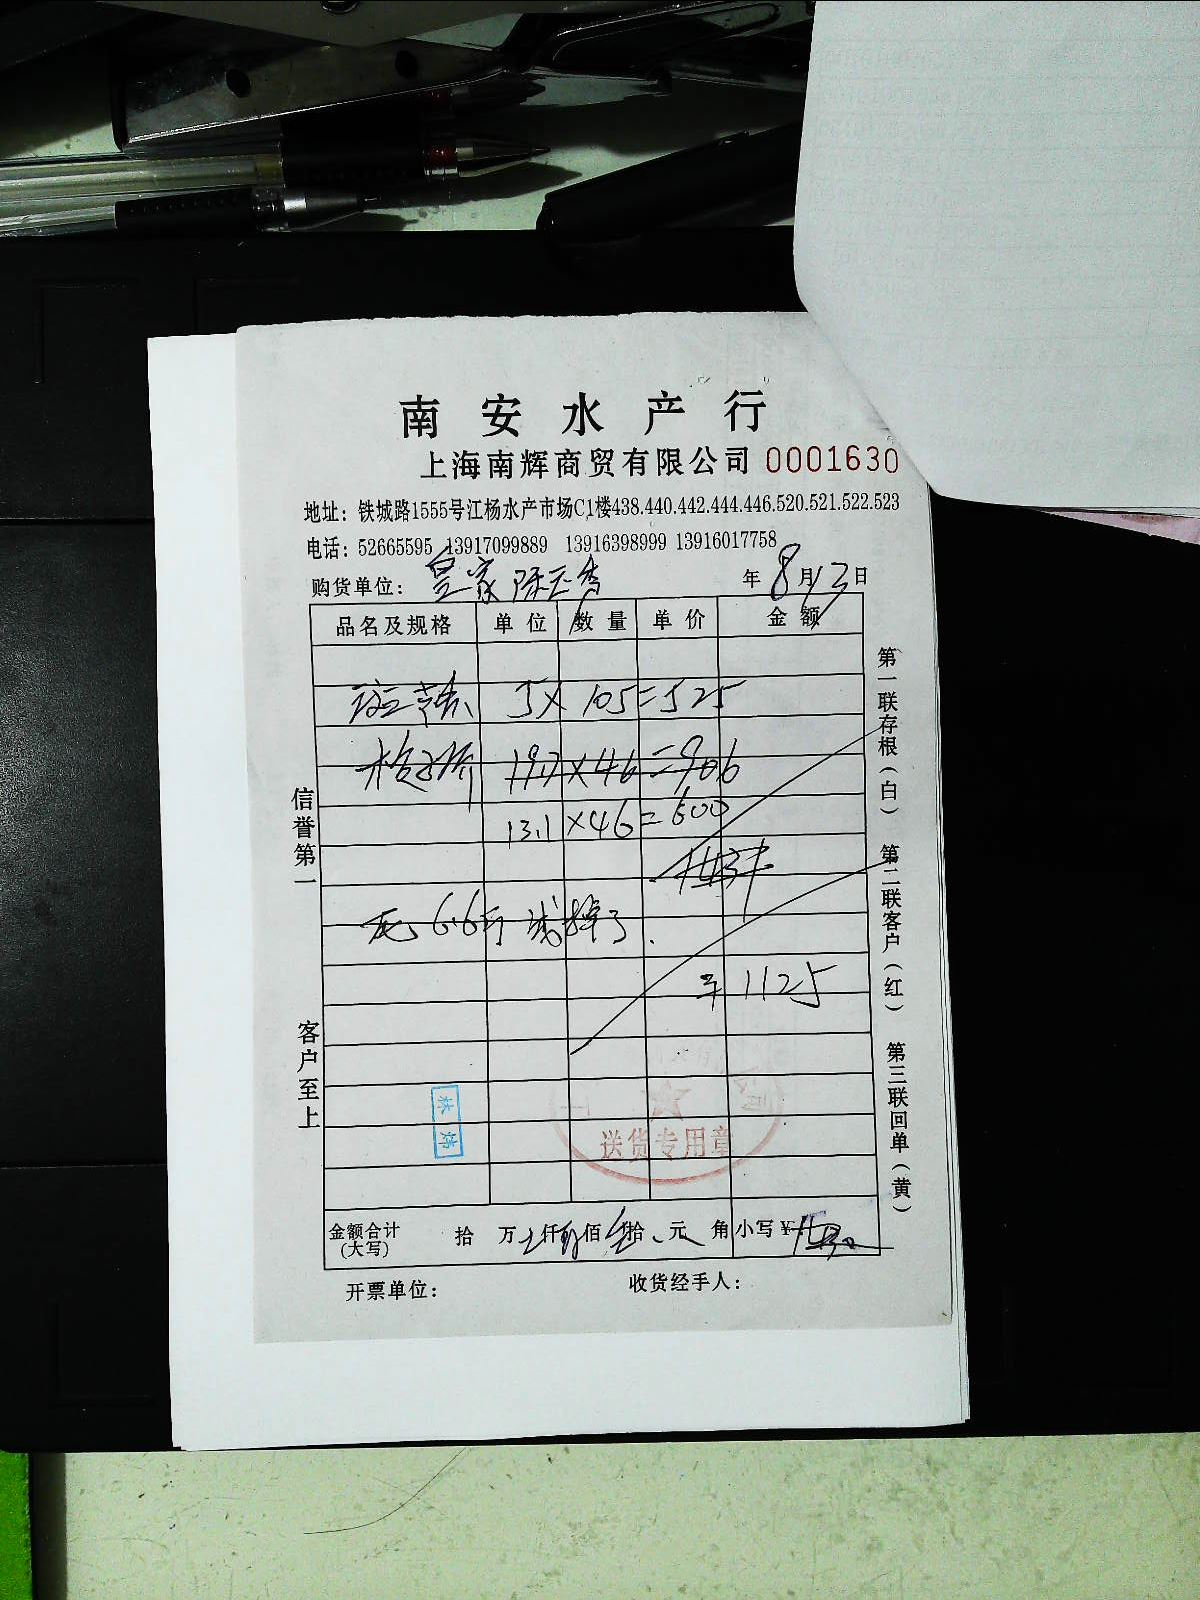 南安水产行
上海南辉商贸有限公司 0001630
地址：铁城路1555号江杨水产市场C1楼438.440.442.444.446.520.521.522.523
电话：52665595 13917099889 13916398999 13916017758
购货单位：皇家 陈 年8月13日
品名及规格 单位 数量 单价 金额
5×105=525
19.7×46=906
13.1×46=600
死 6.6斤 减掉了.
1125
信誉第一 客户至上
第一联存根（白） 第二联客户（红） 第三联回单（黄）
林炜
送货专用章
金额合计（大写） 拾 万 仟 佰 拾 元 角 小写¥
开票单位： 收货经手人：